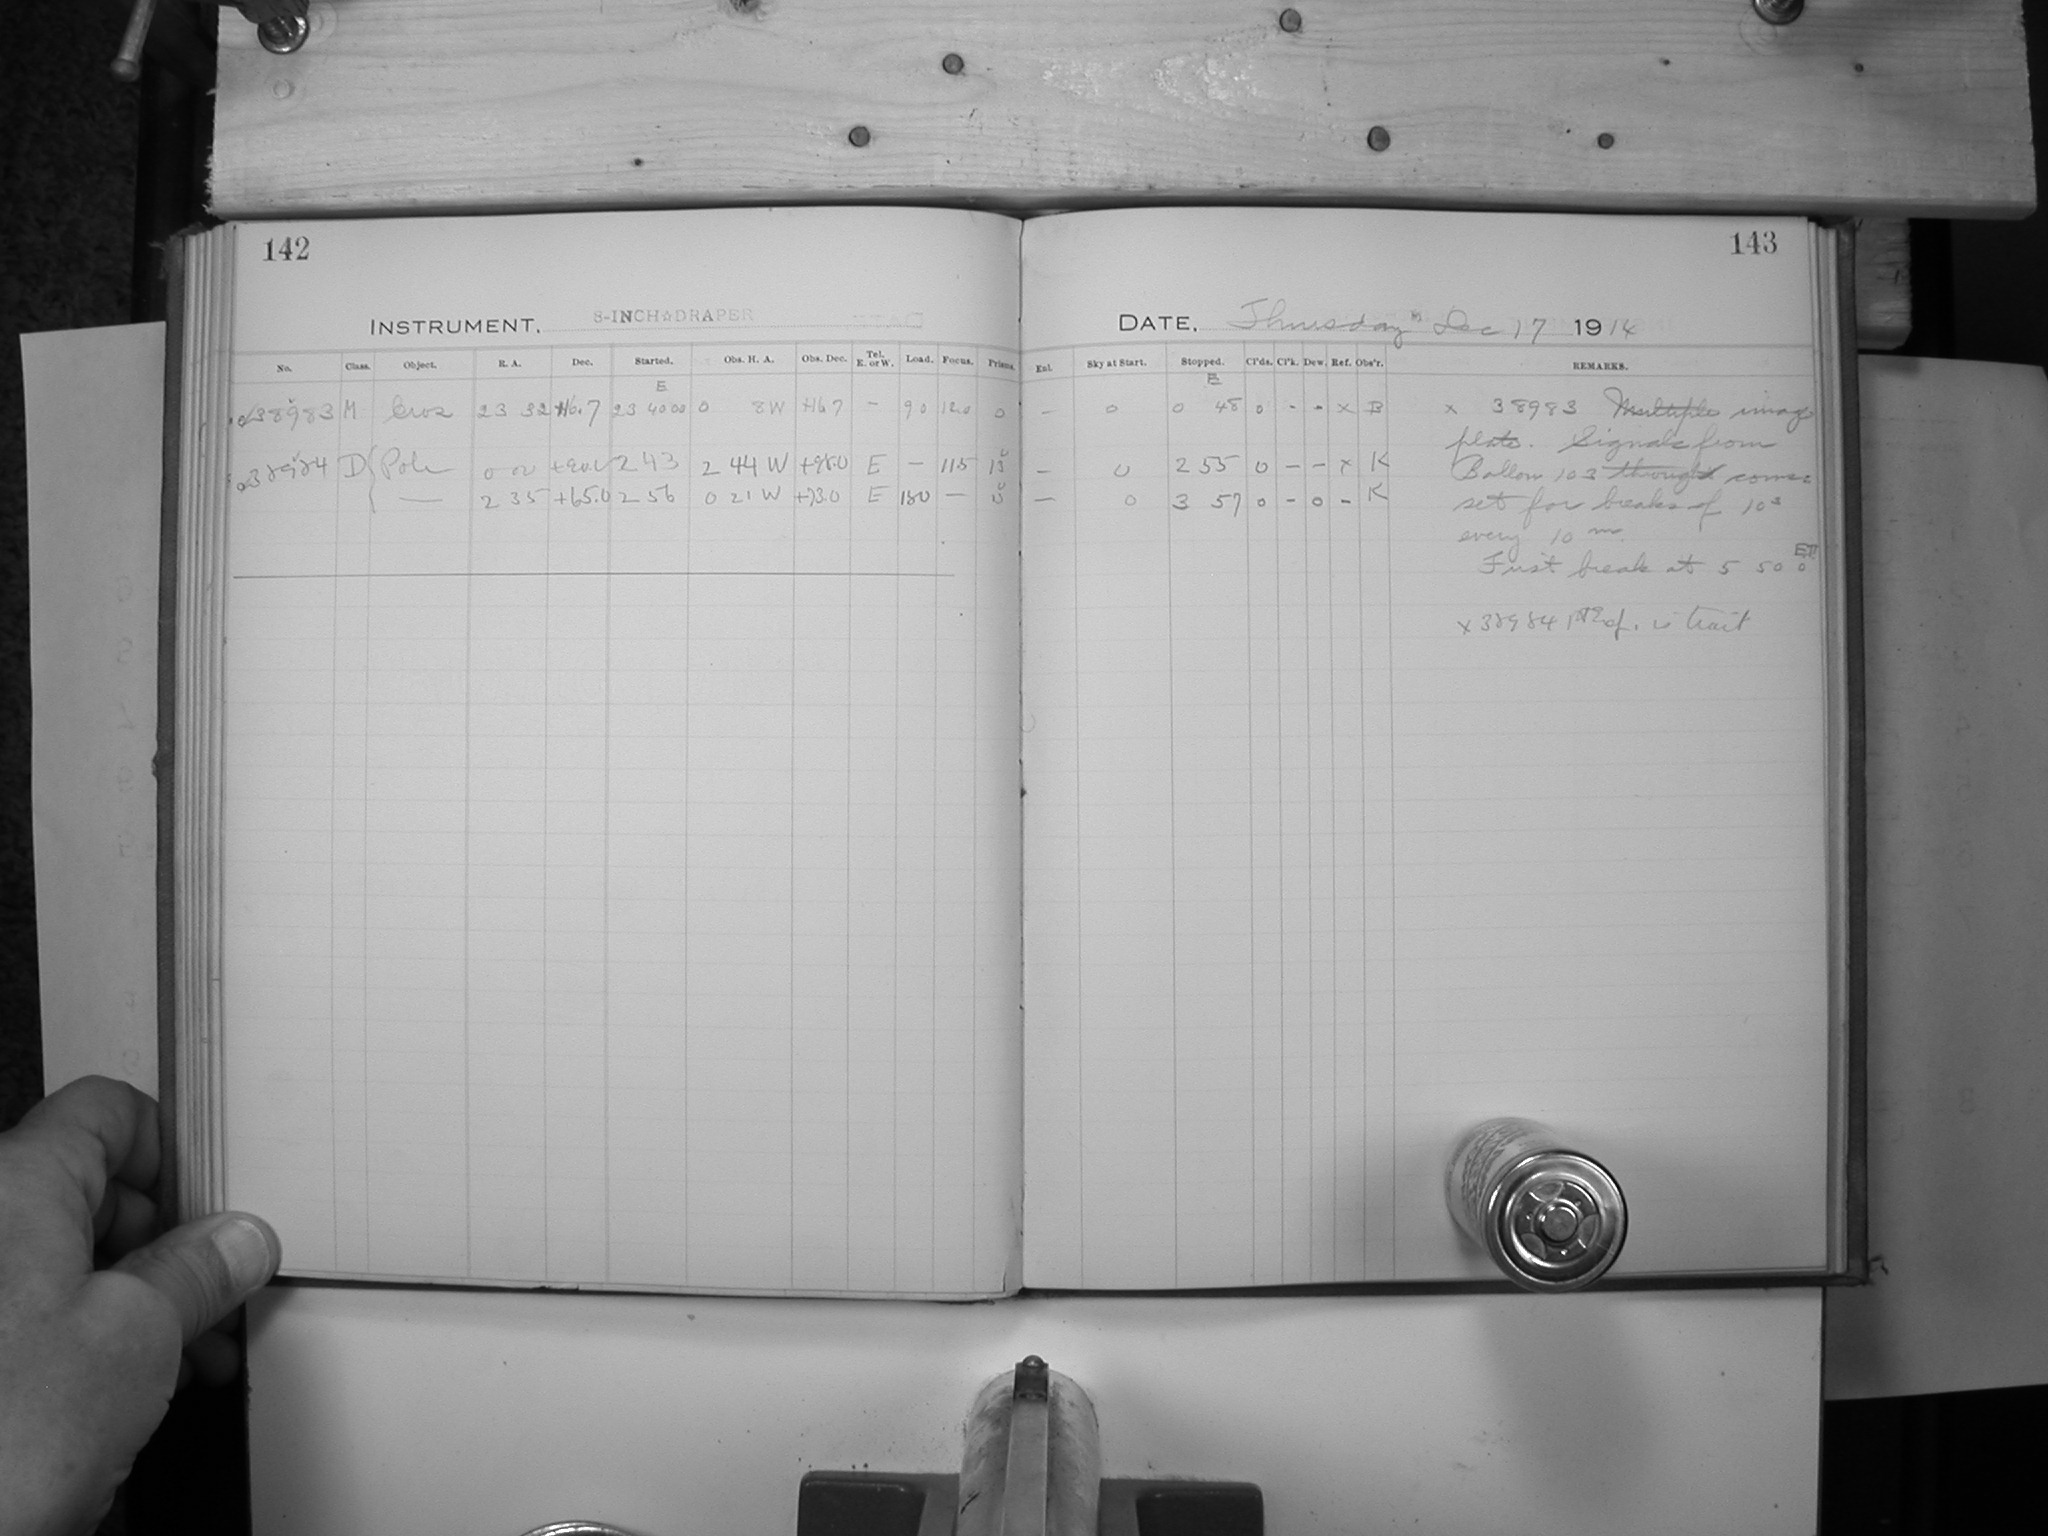 142
143
INSTRUMENT. 8-INCH DRAPER
DATE, Thursday Dec 17 1914
No. Class. Object. R. A. Dec. Started. Obs. H. A. Obs. Dec. Tel. E. or W. Load. Focus. Prisms. Ext. Sky at Start. Stopped. Cl'ds. Cl'k. Dew. Ref. Obs'r. REMARKS.
E E
38983 M Eros 23 32 +16.7 23 40 00 0 8 W +16 7 – 90 12.0 0 – 0 0 48 0 - - x B x 38983 Multiple image
plate. Signals from
38984 D { Pole 0 0 2 43 2 44 W E – 11.5 – 0 2 55 0 – – x K 103
— 2 35 +65.0 2 56 0 21 W +73.0 E 180 – – 0 3 57 0 - 0 - K set for breaks of 10s
every 10 m.
First break at 5 50 0
x 38984 is trail